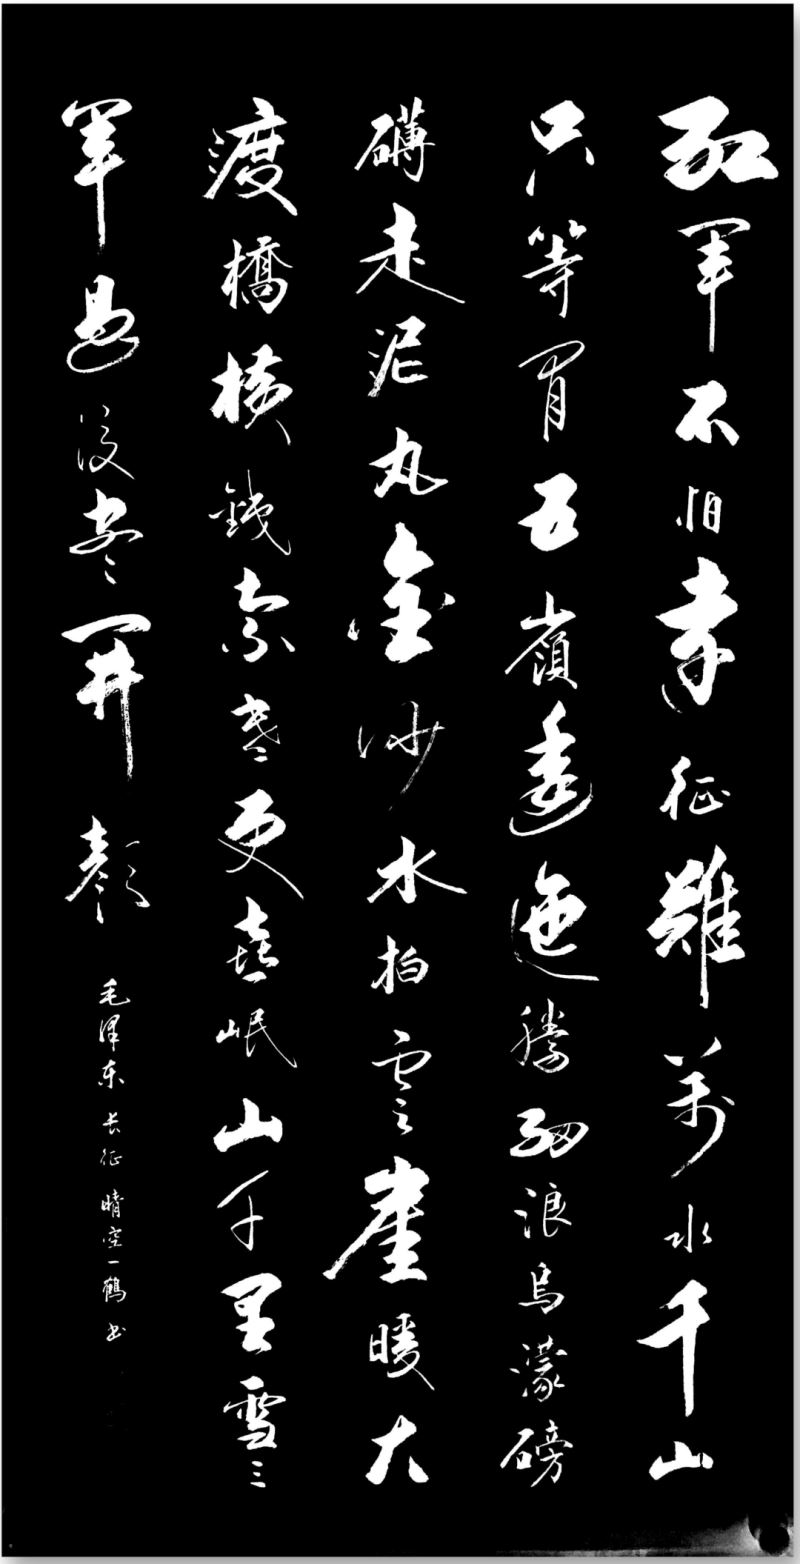 紅軍不怕遠征難萬水千山
只等閒五嶺逶迤騰細浪烏濛磅
礴走泥丸金沙水拍雲崖暖大
渡橋橫鐵索寒更喜岷山千里雪三
軍過後盡開顏
毛泽东长征晴空一鶴书